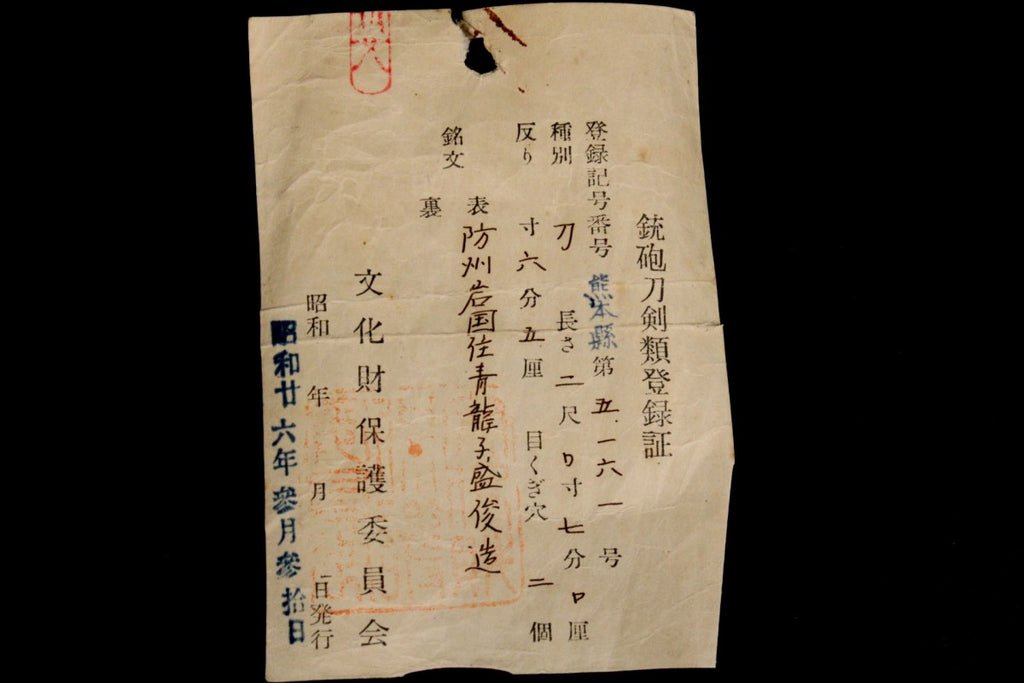 銃砲刀剣類登録証
登録記号番号 熊本縣 第五一六一号
種別 刀 長さ 二尺〇寸七分〇厘
反り 寸六分五厘 目くぎ穴 二個
銘文 表 防州岩国住青龍子盛俊造
裏
文化財保護委員会
昭和 年 月 日発行
昭和廿六年参月参拾日